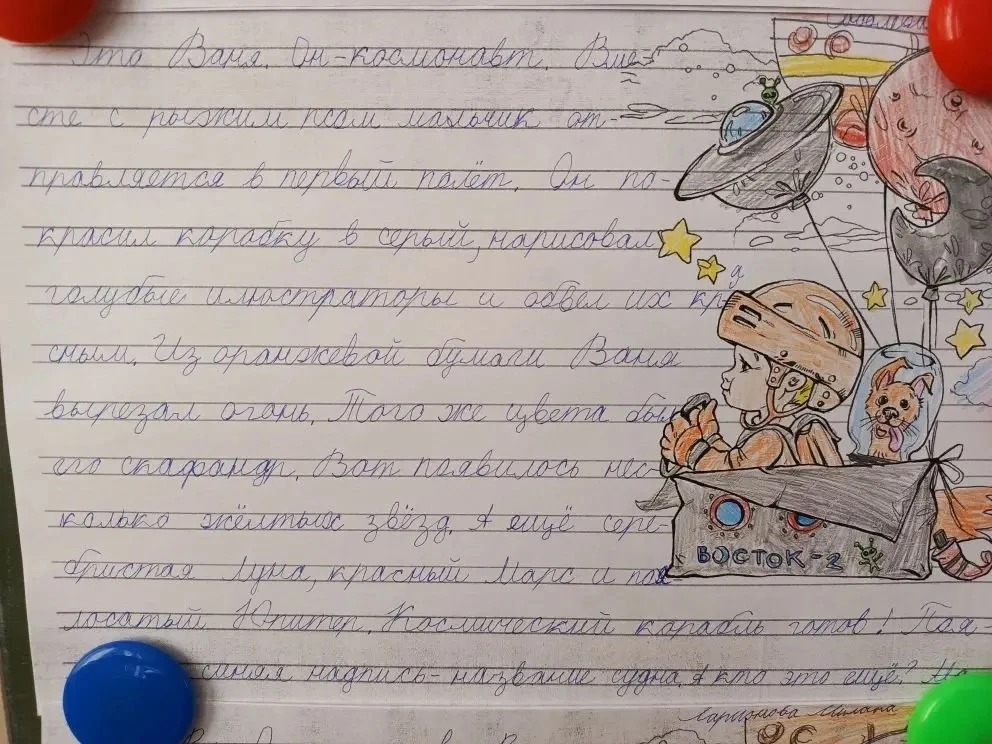 Это Ваня. Он - космонавт. Вме-
сте с рыжим псом мальчик от-
правляется в первый полёт. Он по-
красил коробку в серый, нарисовал
голубые илюстраторы и обвёл их кра
сным. Из оранжевой бумаги Ваня
вырезал огонь. Того же цвета был
его скафандр. Вот появилось нес-
колько жёлтых звёзд. А ещё сере-
бристая Луна, красный Марс и по-
лосатый Юпитер. Космический корабль готов! Поя-
синяя надпись - название судна. А кто это ещё? На
ВОСТОК - 2
Ларионова Милана